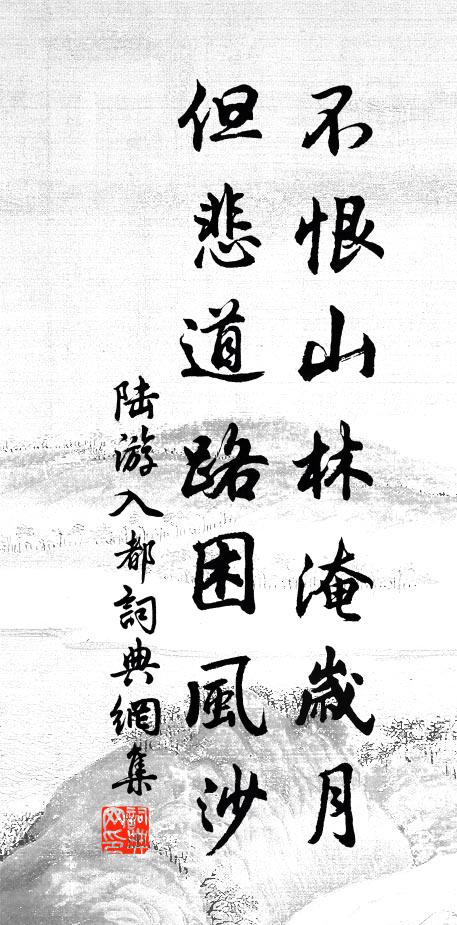 不恨山林淹歲月
但悲道路困風沙
陆游入都詞典網集
詞典网